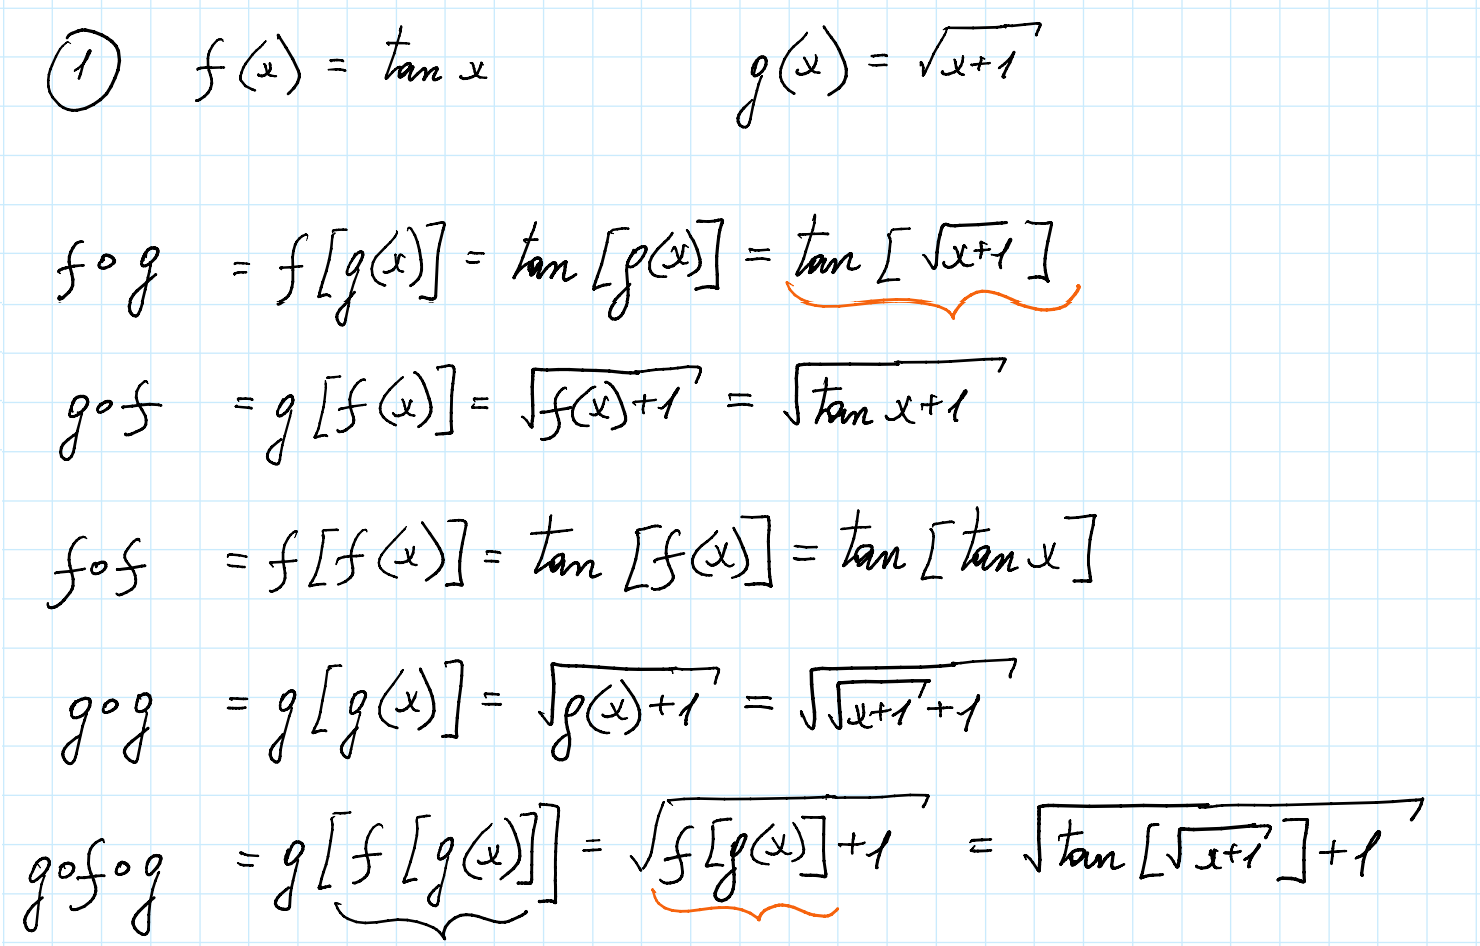 ① f(x) = tan x g(x) = √(x+1)
f∘g = f[g(x)] = tan[g(x)] = tan[√(x+1)]
g∘f = g[f(x)] = √(f(x)+1) = √(tan x+1)
f∘f = f[f(x)] = tan[f(x)] = tan[tan x]
g∘g = g[g(x)] = √(g(x)+1) = √(√(x+1)+1)
g∘f∘g = g[f[g(x)]] = √(f[g(x)]+1) = √(tan[√(x+1)]+1)